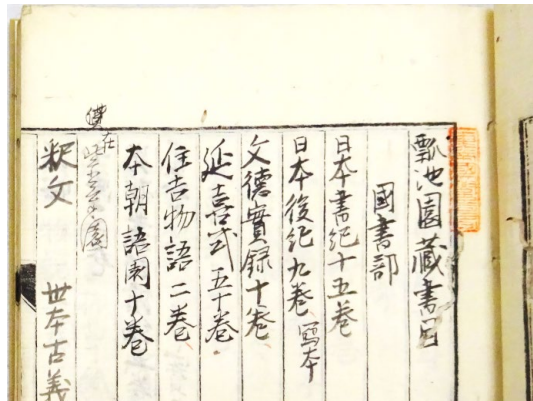 瓢池園蔵書目
國書部
日本書紀十五巻
日本後紀九巻 写本
文德實録十巻
延喜式五十巻
住吉物語二巻
本朝語園十巻
釈文 世本古義